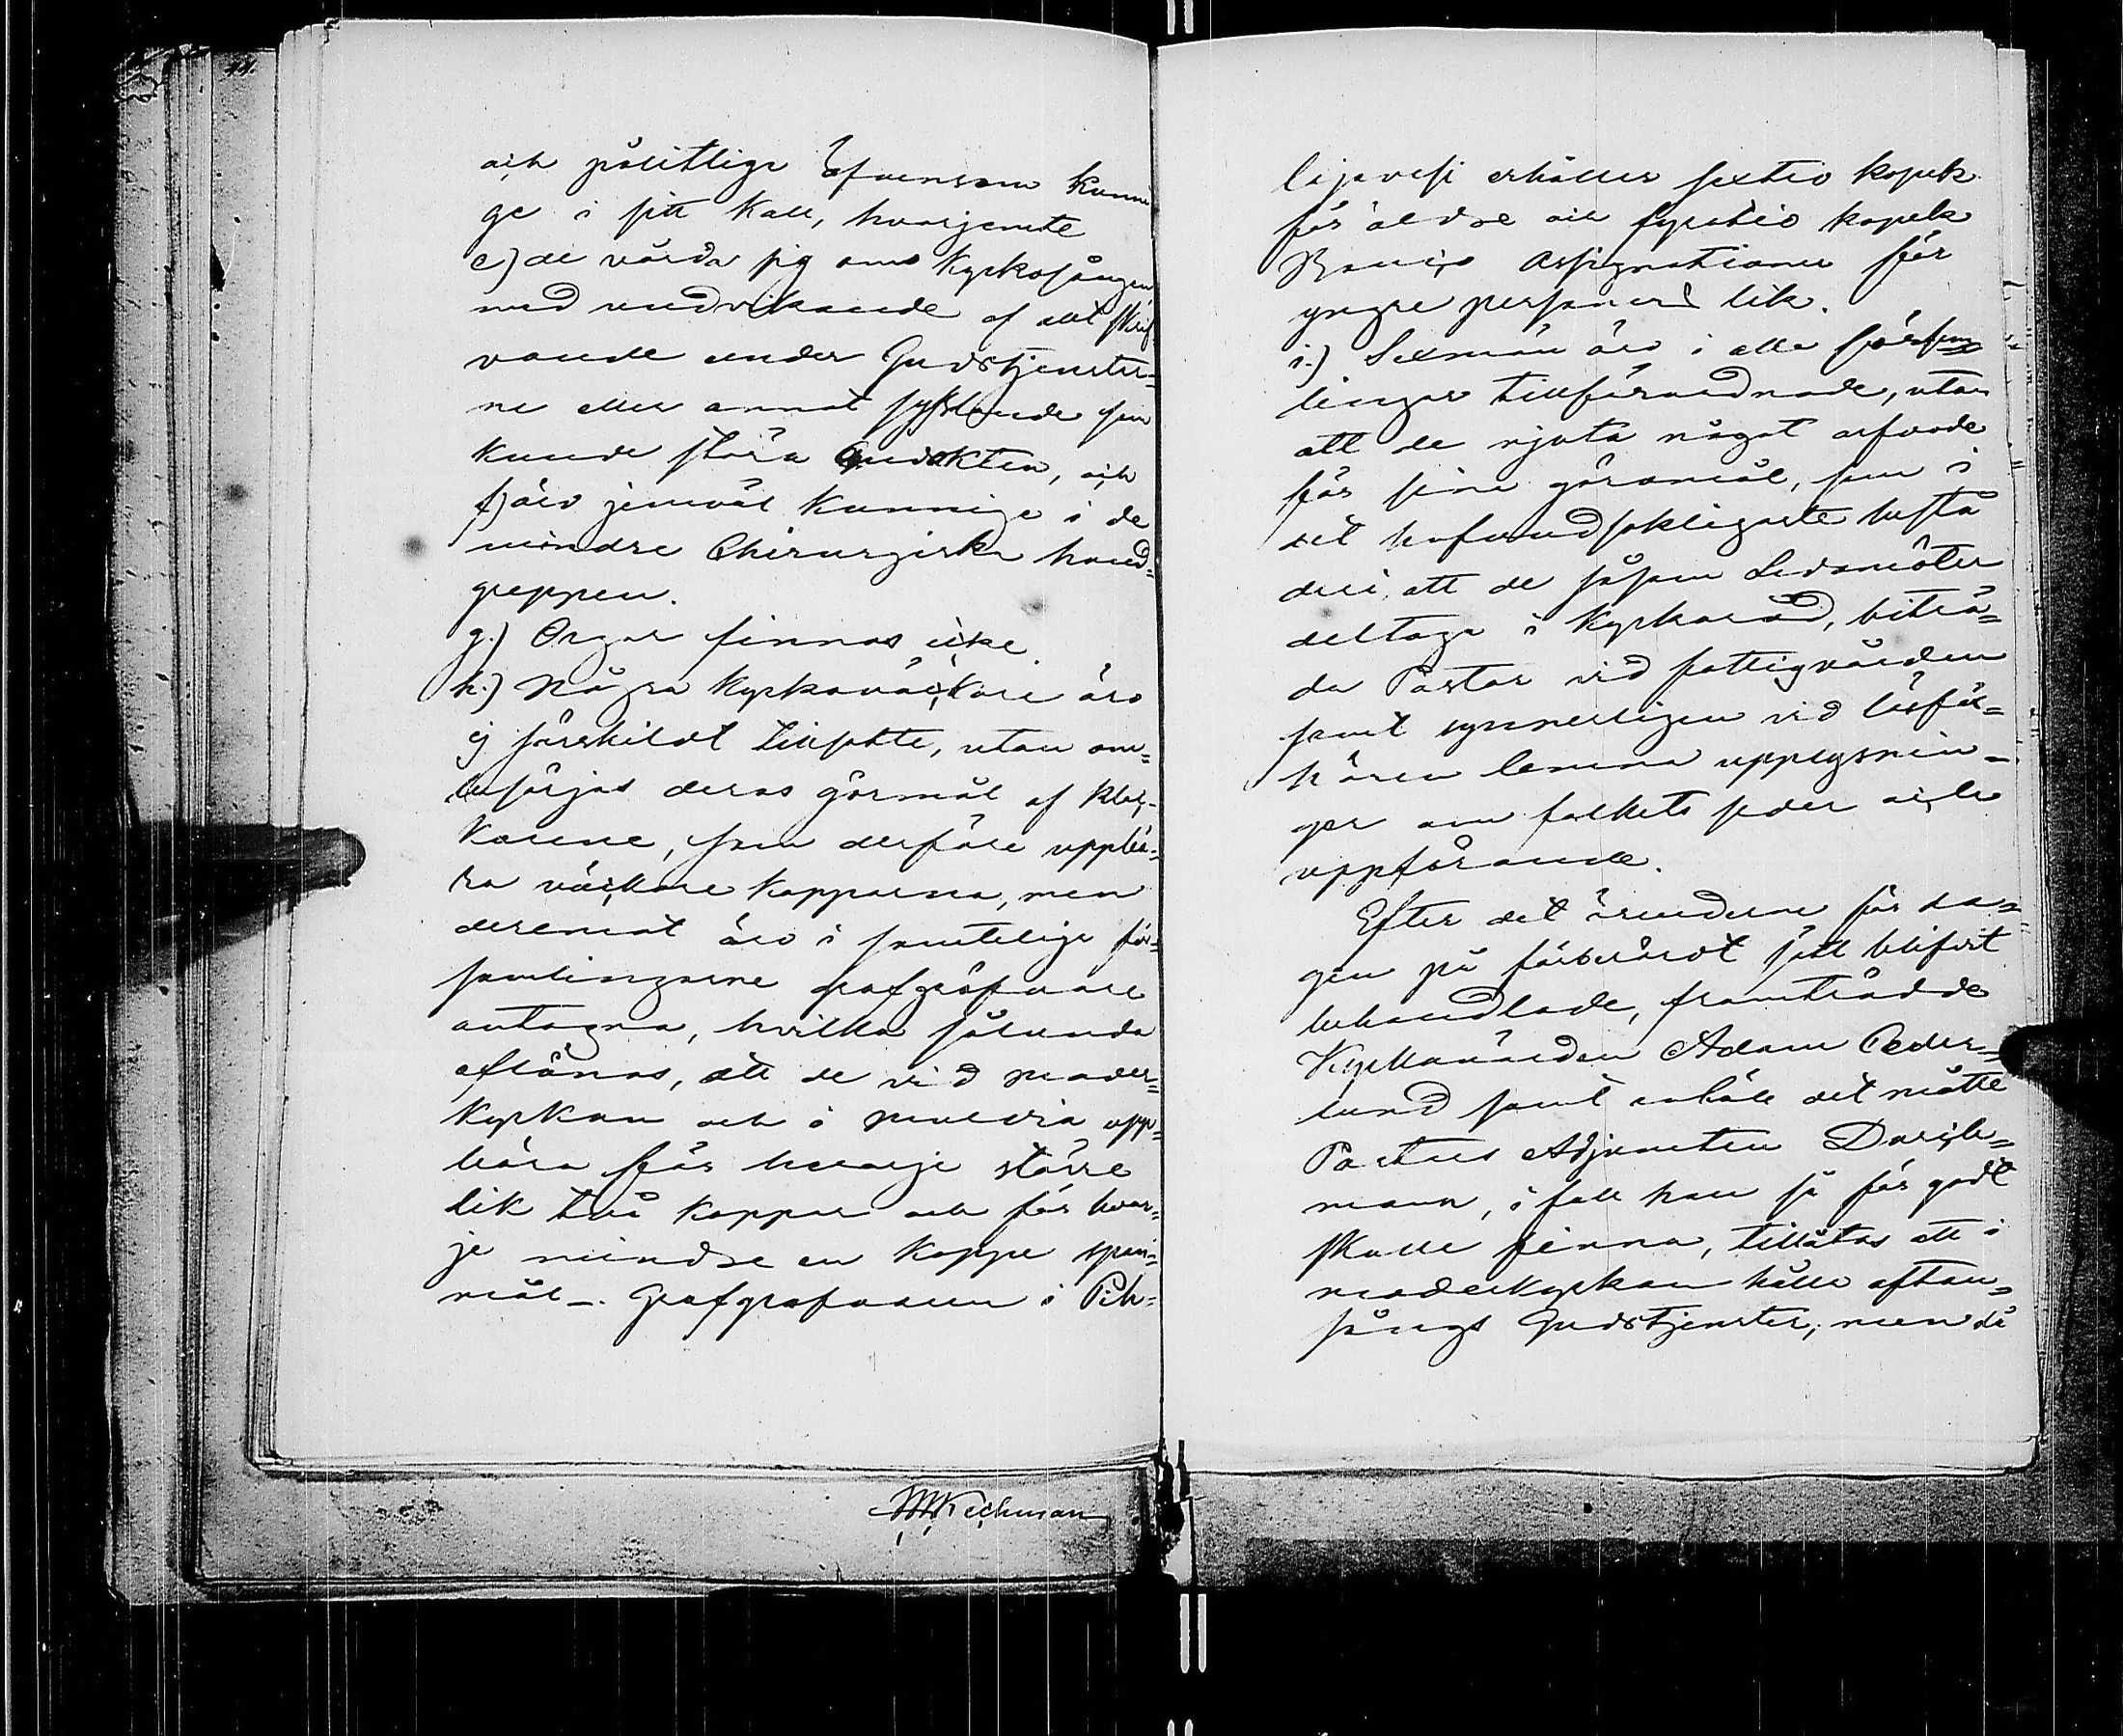 44.
och pålitlige äfvensom kunni
ge i sitt kall, hvarjemte
e) de vårda sig om kyrkosången
med undvikande af allt skrif
vande under Gudstjenster=
ne eller annat sysslande som
kunde störa Andakten, och
f) äro jemväl kunnige i de
mindre Chirurgiska hand=
greppen.
g.) Orgor finnas icke.
h.) Några kyrkoväcktare äro
ej särskildt tillsatte, utan om=
besörjas deras görmål af kloc-
karene, som derföre uppbä=
ra väcktare kapparna, men
deremot äro i samtelige för=
samlingarne grafgräfvare
antagna, hvilka sålunda
aflönas, att de vid moder=
kyrkan och i Muldia upp=
bära för hvarje större
lik två kappar och för hvar=
je mindre en kappe span=
mål_. Grafgrafvaren i Pih=
lajavesi erhåller sextio kopek
för äldre och fyratio kopek
Banco Assignationer för
yngre personers lik.
i.) Sexmän äro i alla försam
lingar tillförordnade, utan
att de njuta något arfvode
för sine göromål, som i
det hufvudsakligaste bestå
deri, att de såsom Ledamöter
deltaga i kyrkoråd, biträ=
da Pastor vid fattigvården
samt synnerligen vid läsför=
hören lemna upplysnin-
gar om folkets seder och
uppförande.
Efter det ärenderne för da=
gen på förberördt sätt blifvit
behandlade, framträdde
Kyrkovärden Adam Ceder=
lund samt anhöll det måtte
Pastors Adjuncten Dorch=
mann, i fall han så för godt
skulle finna, tillåtas att i
moderkyrkan hålla aftan=
sångs Gudstjenster, men då